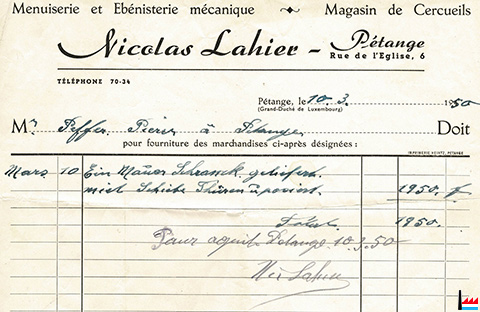 Menuiserie et Ebénisterie mécanique Magasin de Cercueils
Nicolas Lahier - Pétange
Rue de l'Eglise, 6
TÉLÉPHONE 70-34
Pétange, le 10. 3. 1950
(Grand-Duché de Luxembourg)
Mr Peffer Pierre à Petange Doit
pour fourniture des marchandises ci-après désignées :
IMPRIMERIE HEINTZ, PETANGE
Mars 10 Ein geliefert.
miet Schiebe Thüren 1950. f
Total. 1950.
Pour aquit Petange 10.3.50
Nic Lahier